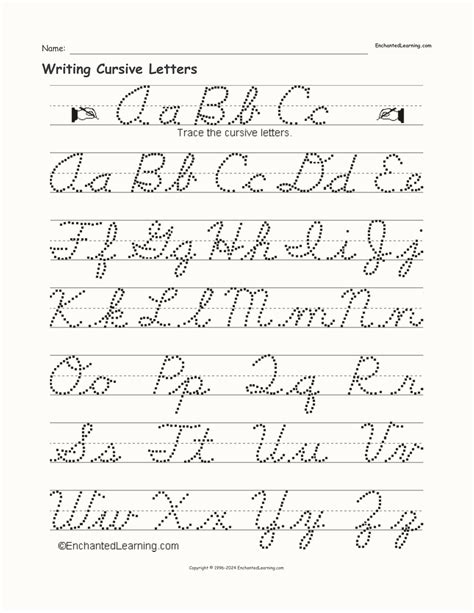 Name:
EnchantedLearning.com
Writing Cursive Letters
Aa Bb Cc
Trace the cursive letters.
Aa Bb Cc Dd Ee
Ff Gg Hh Ii Jj
Kk Ll Mm Nn
Oo Pp Qq Rr
Ss Tt Uu Vv
Ww Xx Yy Zz
©EnchantedLearning.com
Copyright © 1996-2024 EnchantedLearning.com